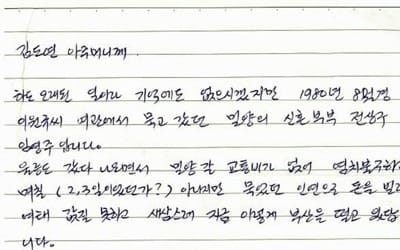 김도연 아주머니께.
하도 오래된 일이라 기억에도 없으시겠지만 1980년 8월경
이원호씨 여관에서 묵고 갔던 밀양의 신혼부부 전상구
임영주 입니다.
울릉도 갔다 나오면서 밀양 갈 교통비가 없어 염치불구하고
며칠 (2,3일이었던가?) 이나마 묵었던 인연으로 돈을 빌려
여태 갚질 못하고 새삼스레 지금 이렇게 부산을 떨고 있답
니다.